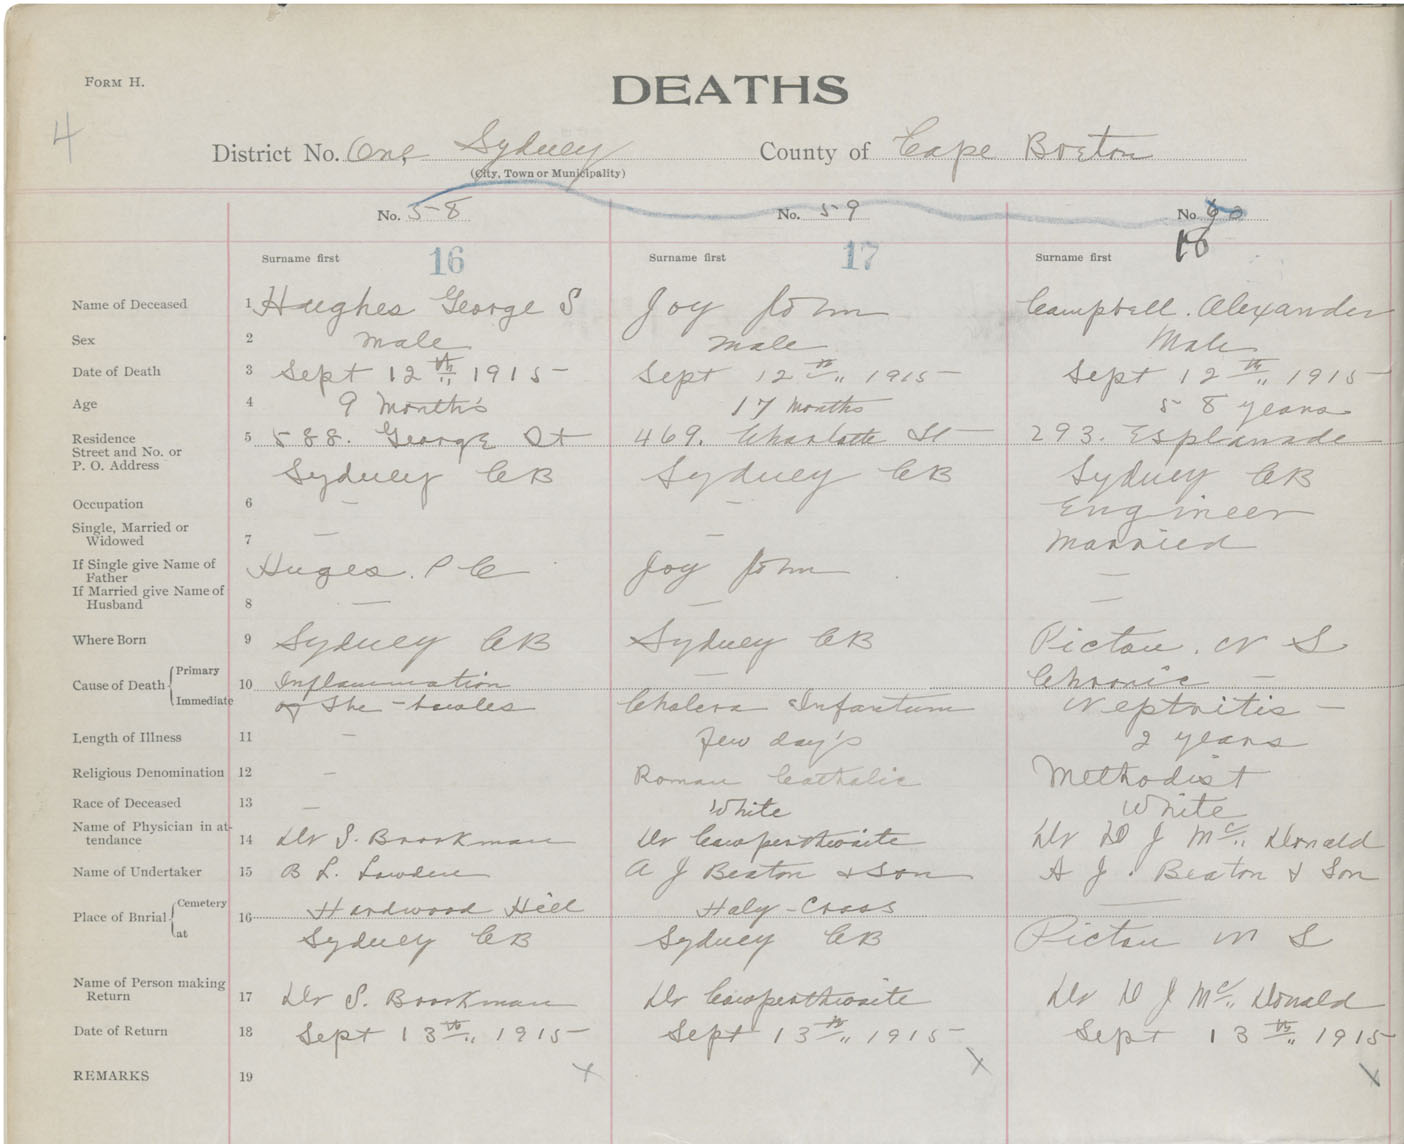 FORM H.
DEATHS
4
District No. One Sydney County of Cape Breton
(City, Town or Municipality)
No. 58 No. 59 No. 60
Surname first 16 Surname first 17 Surname first 18
Name of Deceased 1 Hughes George S Joy John Campbell. Alexander
Sex 2 male male Male
Date of Death 3 Sept 12th 1915 Sept 12th 1915 Sept 12th 1915
Age 4 9 Months 17 months 58 years
Residence 5 588. George St 469. Charlotte St 293. Esplanade
Street and No. or
P. O. Address Sydney CB Sydney CB Sydney CB
Occupation 6 – – Engineer
Single, Married or
Widowed 7 – – Married
If Single give Name of
Father Huges. P C Joy John –
If Married give Name of
Husband 8 – – –
Where Born 9 Sydney CB Sydney CB Pictou. N S
Cause of Death Primary 10 Inflammation – Chronic –
Immediate of The - bowles Cholera Infantum Neptritis –
Length of Illness 11 – few day's 2 years
Religious Denomination 12 – Roman Catholic Methodist
Race of Deceased 13 – White White
Name of Physician in at-
tendance 14 Dr S. Brookman Dr Cowperthwaite Dr D J Mc Donald
Name of Undertaker 15 B L. Lowden A J Beaton & Son A J. Beaton & Son
Place of Bnrial Cemetery 16 Hardwood Hill Holy - Cross –
at Sydney CB Sydney CB Pictou N S
Name of Person making
Return 17 Dr S. Brookman Dr Cowperthwaite Dr D J Mc Donald
Date of Return 18 Sept 13th 1915 Sept 13th 1915 Sept 13th 1915
REMARKS 19 x x x